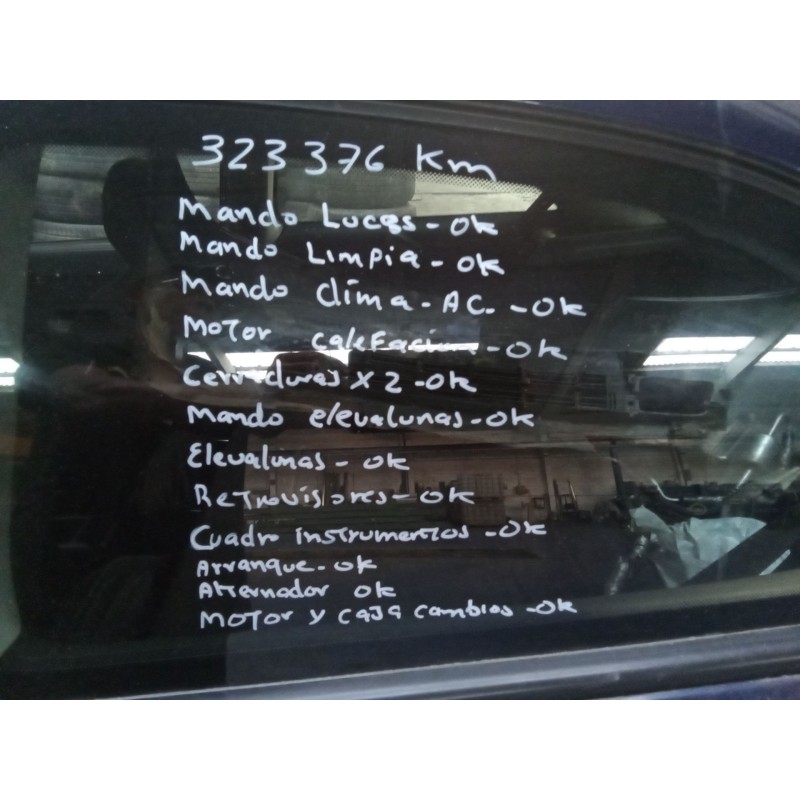 323376 Km
Mando Luces - Ok
Mando Limpia - Ok
Mando clima - AC. - Ok
Motor calefacion - Ok
Cerraduras x 2 - Ok
Mando elevalunas - Ok
Elevalunas - Ok
Retrovisores - Ok
Cuadro instrumentos - Ok
Arranque - Ok
Alternador Ok
Motor y caja cambios - Ok